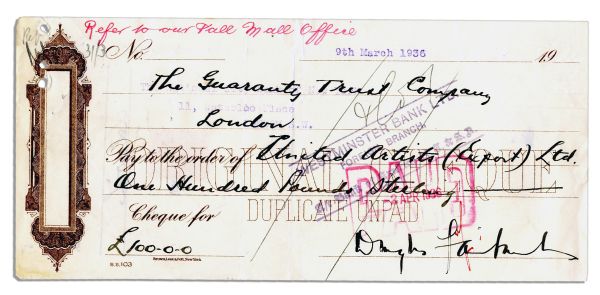 Refer to our Pall Mall Office
31/3
No. 9th March 1936 19
The Guaranty Trust Company
11,
London
Pay to the order of United Artists (Export) Ltd.
One Hundred Pounds Sterling
ORIGINAL CHEQUE,
DUPLICATE UNPAID
WESTMINSTER BANK LTD
BRANCH
PAID
APR 1936
Cheque for
£100-0-0
Douglas Fairbanks
B.B.103